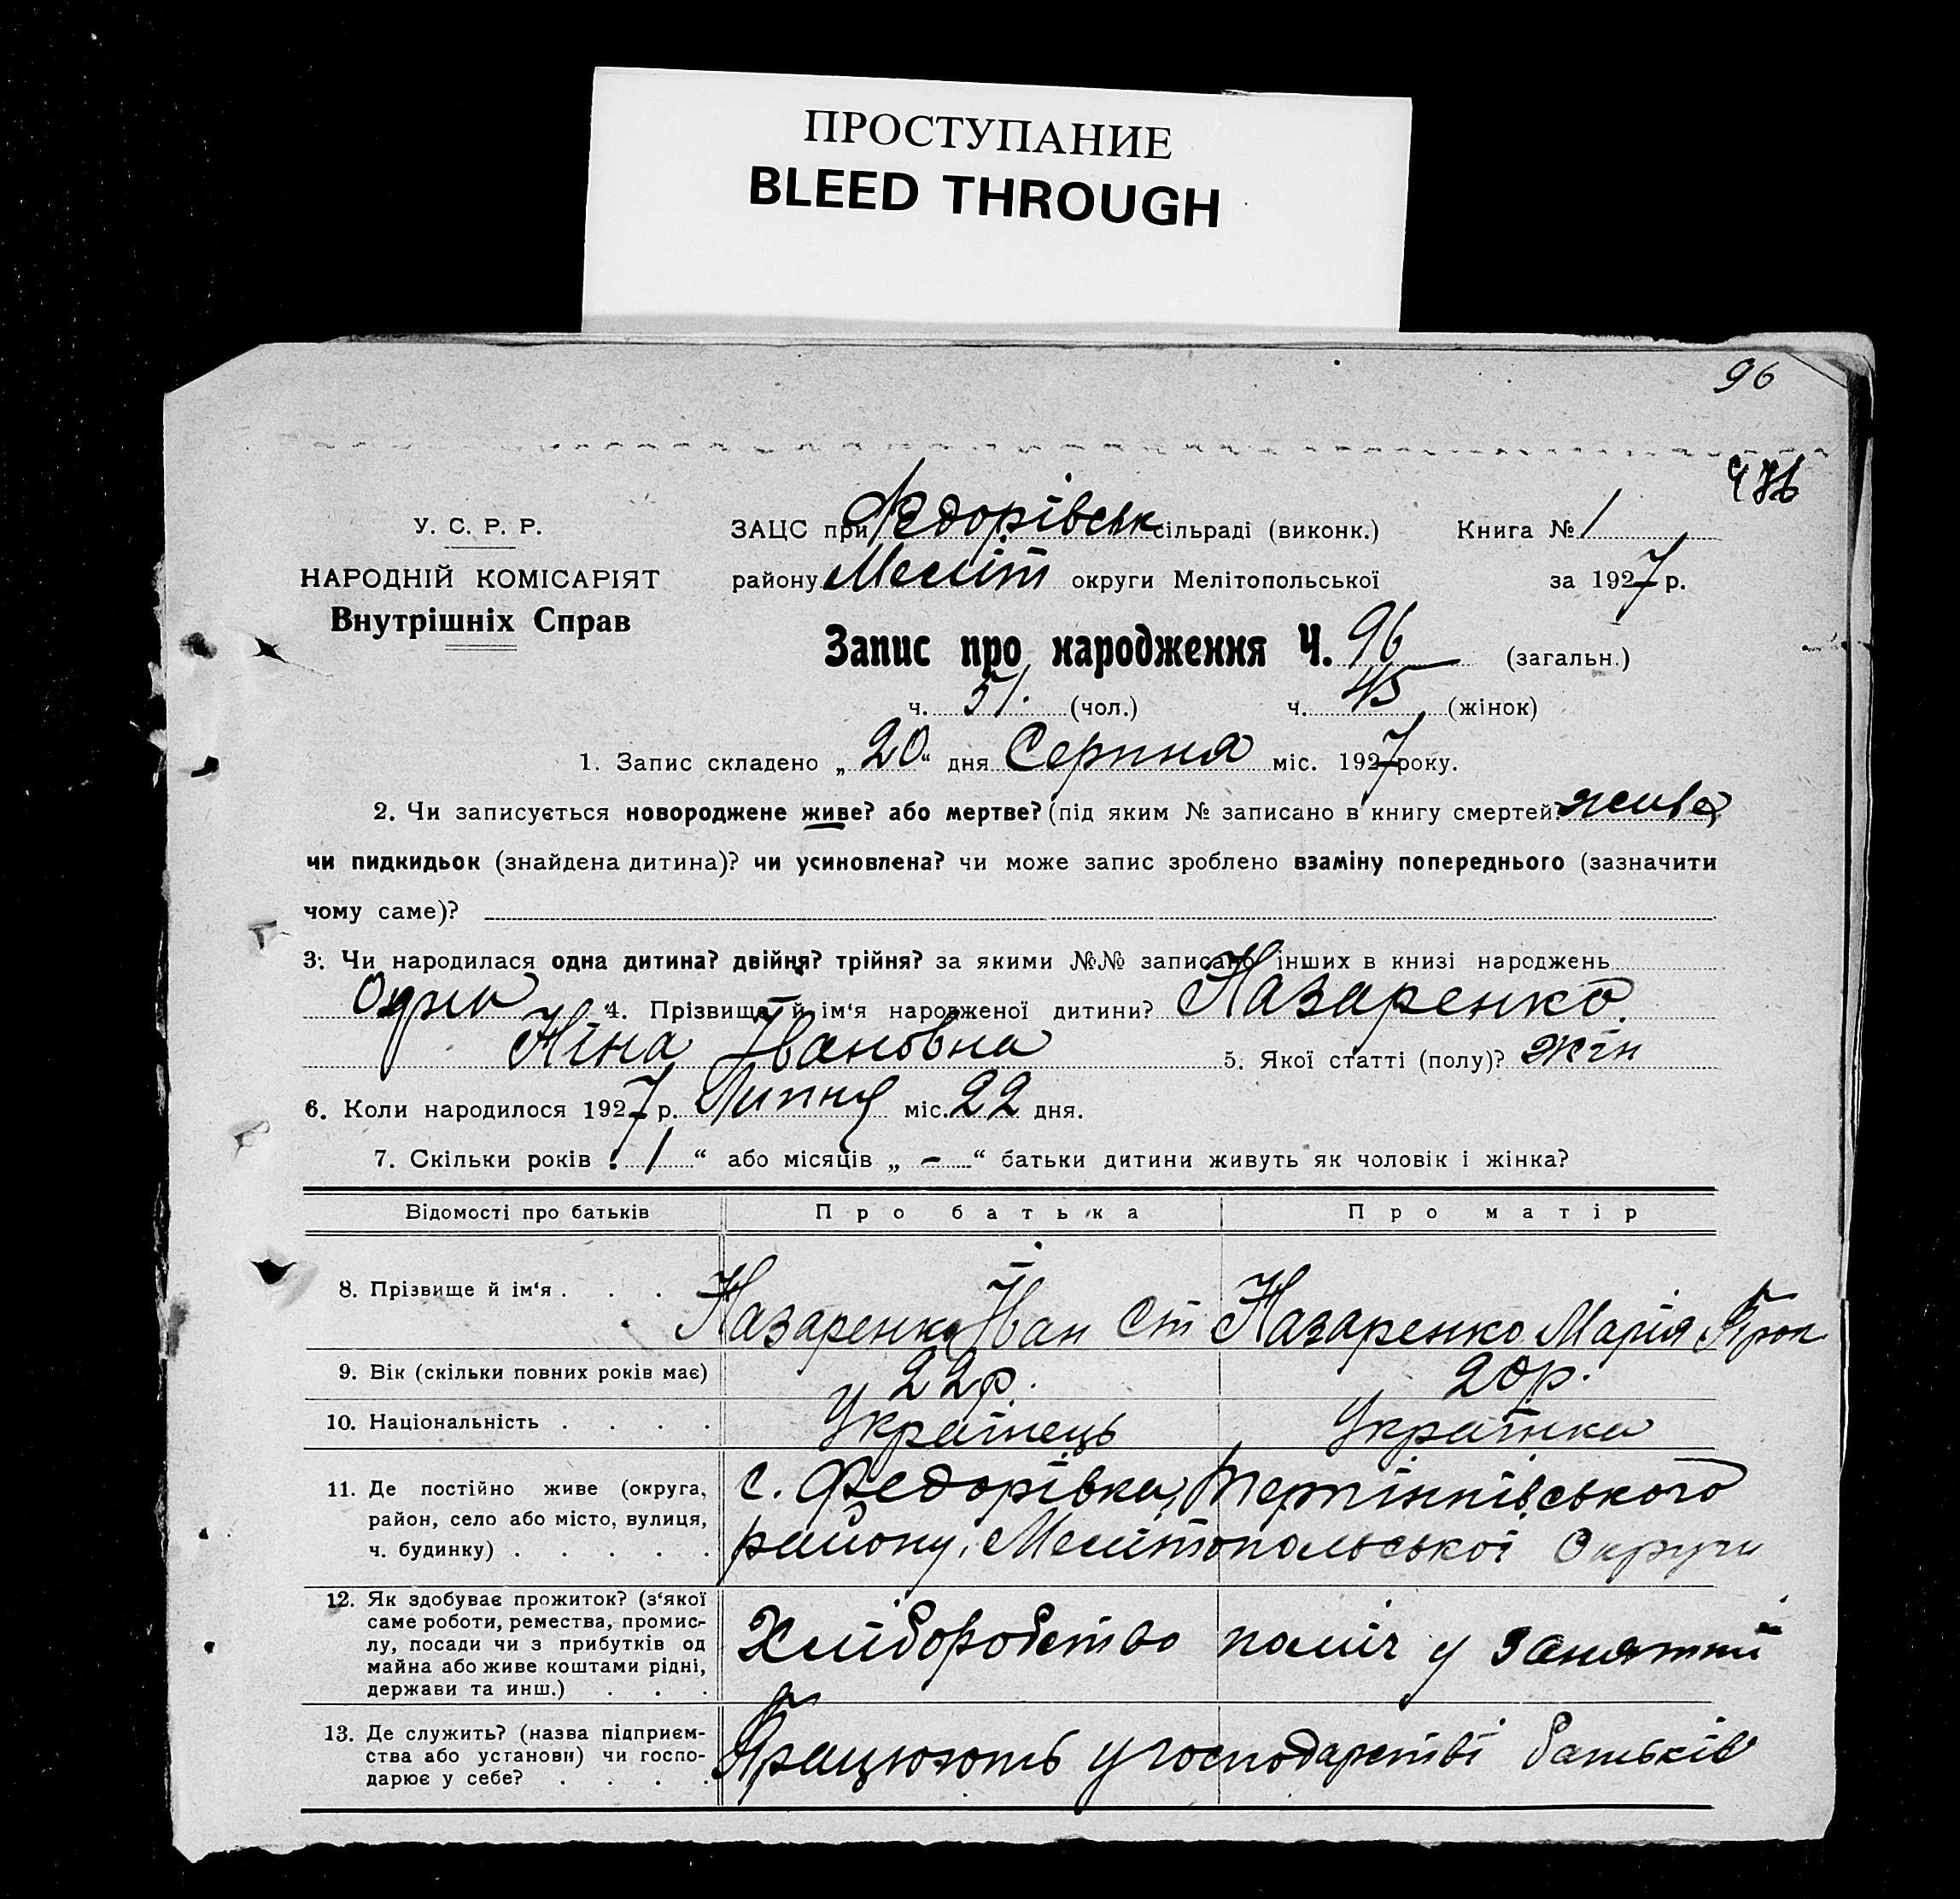 ПРОСТУПАНИЕ
BLEED THROUGH
96
У. С. Р. Р.
НАРОДНІЙ КОМІСАРІЯТ
Внутрішніх Справ
ЗАЦС при Федорівськ сільраді (виконк.) Книга № 1
району Меліт округи Мелітопольської за 1927 р.
Запис про народження Ч. 96 (загальн.)
ч. 51. (чол.) ч. 45 (жінок)
1. Запис складено „ 20 “ дня Серпня міс. 1927 року.
2. Чи записується новороджене живе? або мертве? (під яким № записано в книгу смертей? живе,
чи пидкидьок (знайдена дитина)? чи усиновлена? чи може запис зроблено взаміну попереднього (зазначити
чому саме)?
3. Чи народилася одна дитина? двійня? трійня? за якими №№ записано інших в книзі народжень
Одна 4. Прізвище й ім‘я народженої дитини? Назаренко
Ніна Івановна 5. Якої статті (полу)? жін
6. Коли народилося 1927 р. Липня міс. 22 дня.
7. Скільки років „ 1 “ або місяців „ - “ батьки дитини живуть як чоловік і жінка?
Відомості про батьків Про батька Про матір
8. Прізвище й ім‘я . . . Назаренко Іван Ст Назаренко Марія Проп
9. Вік (скільки повних років має) 22 р. 20 р.
10. Національність . . . . Українець Українка
11. Де постійно живе (округа,
район, село або місто, вулиця,
ч. будинку) . . . . .
с. Федорівка, Терпінніівського
району, Мелітопольської Округи
12. Як здобуває прожиток? (з‘якої
саме роботи, ремества, промис-
лу, посади чи з прибутків од
майна або живе коштами рідні,
держави та инш.) . . .
Хліборобство поміч у занятті
13. Де служить? (назва підприєм-
ства або установи) чи госпо-
дарює у себе? . . . .
Працюють у господарстві батьків